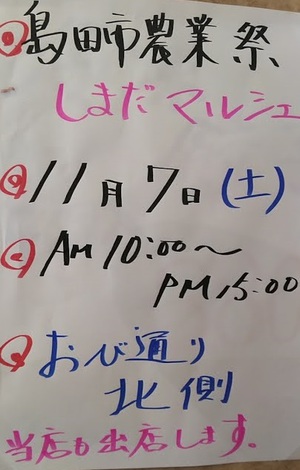 島田市農業祭
しまだマルシェ
11月7日(土)
AM10:00〜
PM15:00
おび通り
北側
当店も出店します。